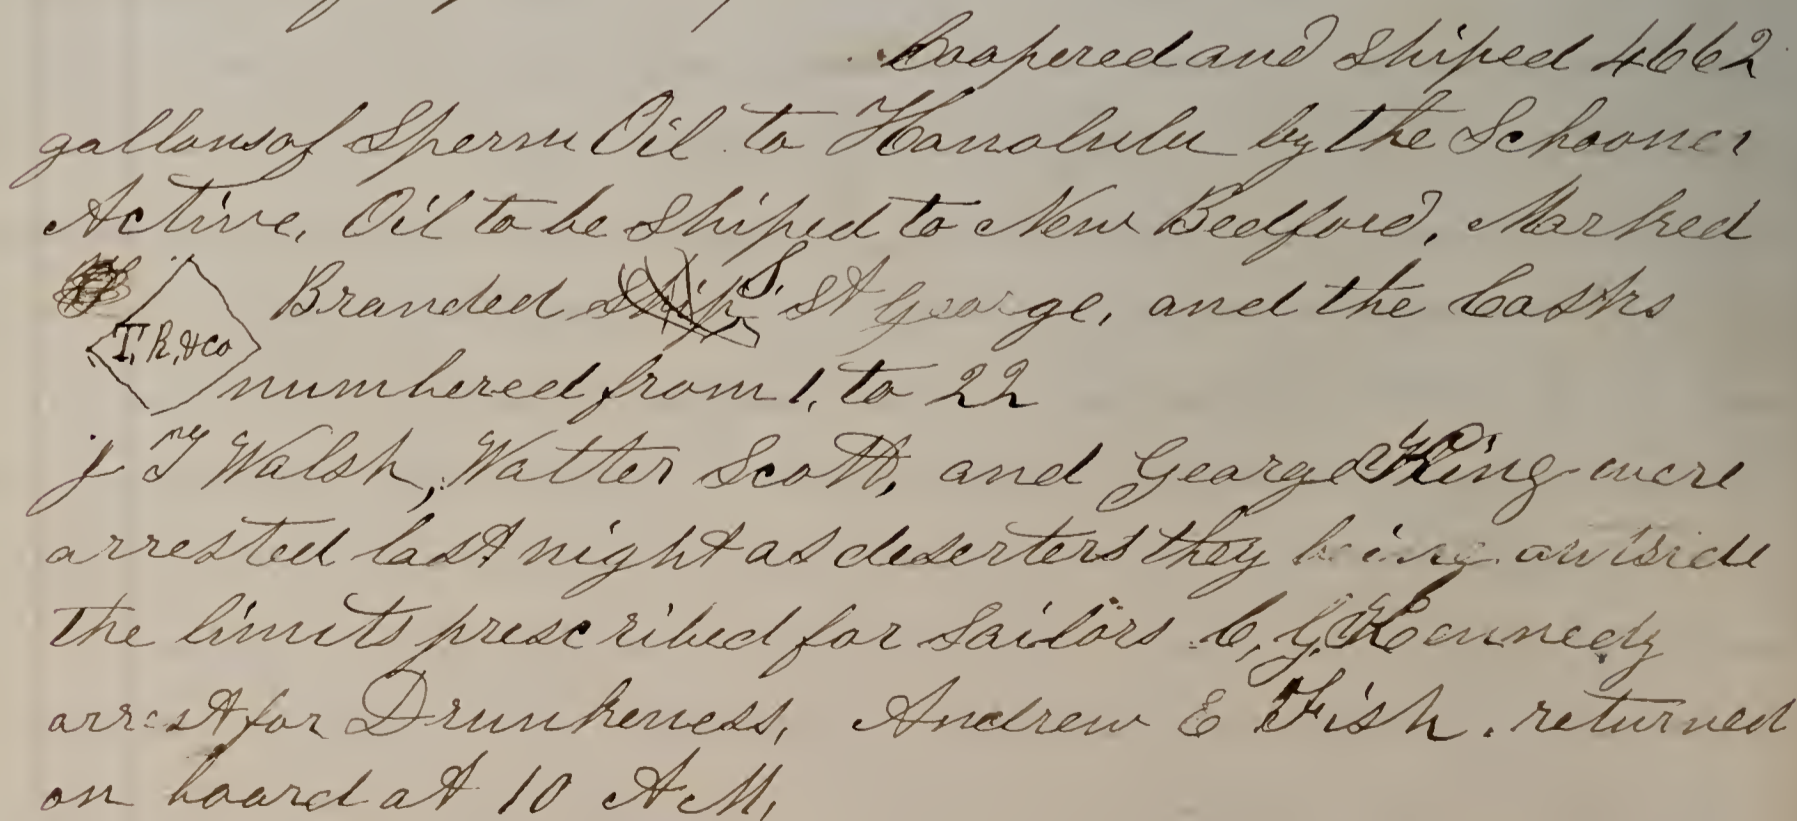 Coopered and Shiped 4662
gallons of Sperm Oil to Honolulu by the Schooner
Active, Oil to be Shiped to New Bedford, Marked
Branded Ship S. St George, and the Casks
T, R, & Co
numbered from 1, to 22
J T Walsh, Walter Scott, and George King were
arrested last night as deserters they being outside
the limits prescribed for Sailors C, G, Kennedy
arrest for Drunkeness, Andrew E Fish. returned
on board at 10 A M,